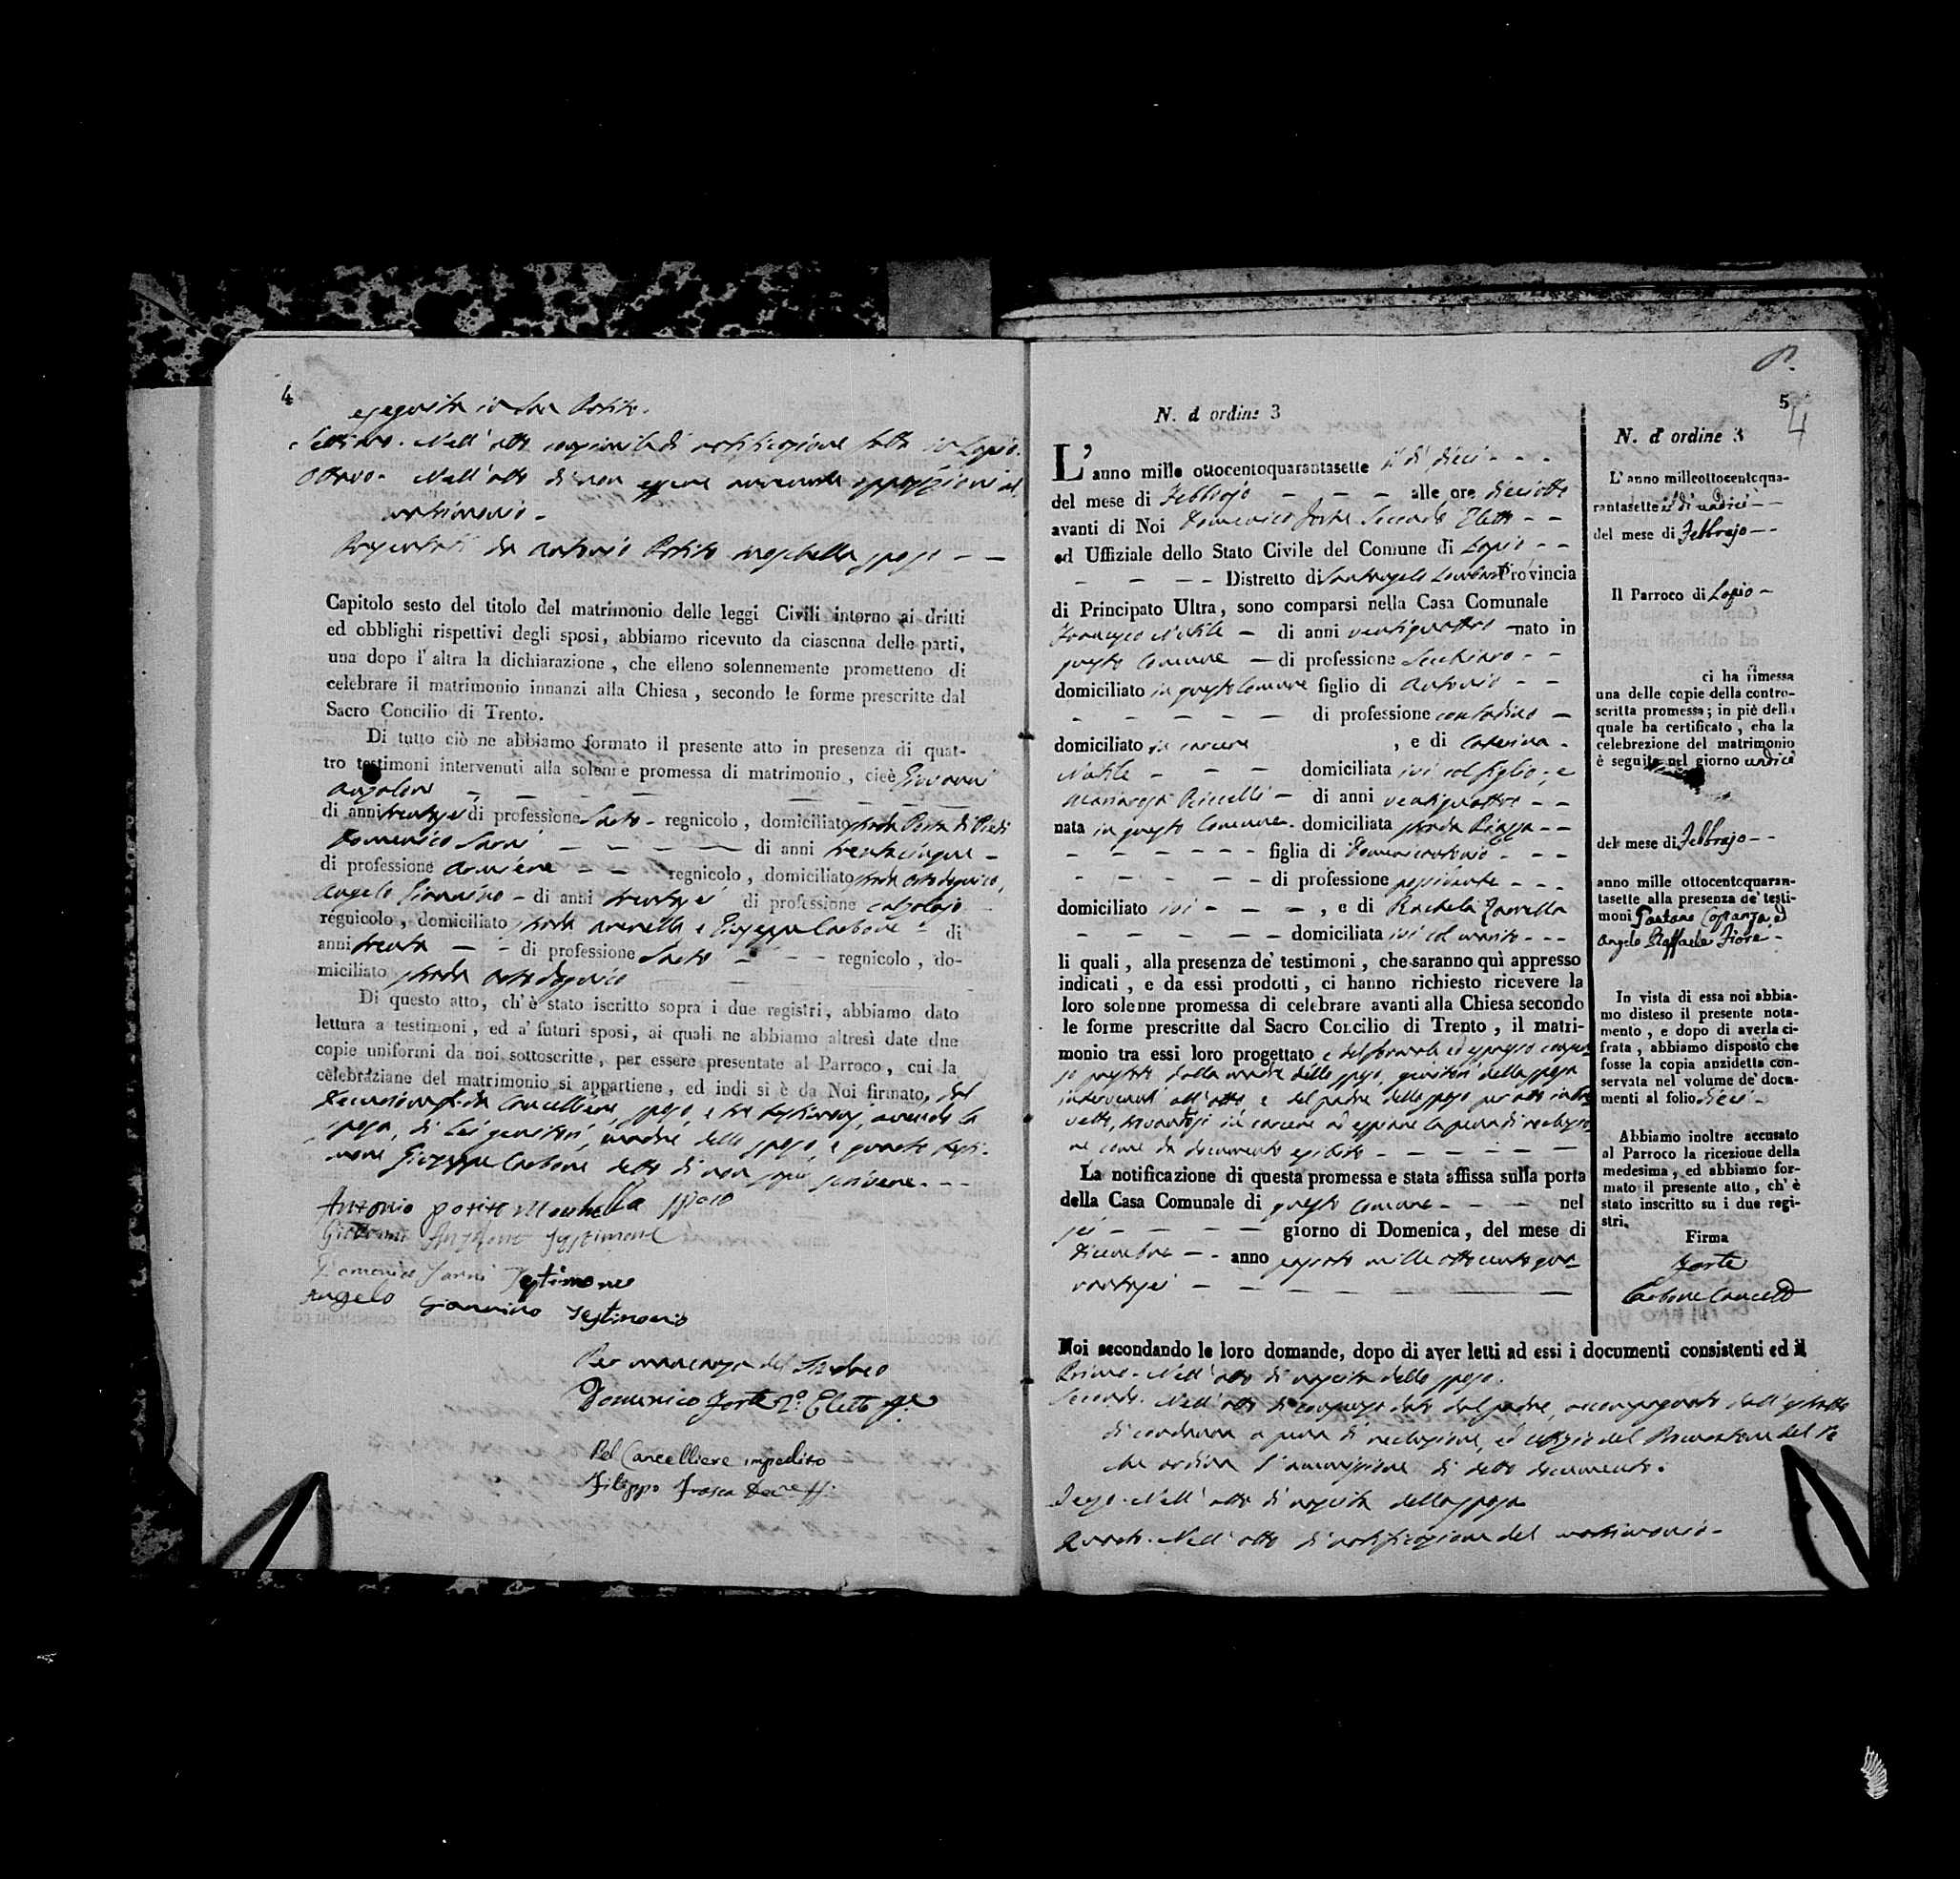 4
eseguita in San Potito.
Settimo. Nell' atto consimile di notificazione fatta in Lapio.
Ottavo. Nell' atto di non essere avvenuta opposizioni al
matrimonio.
Presentati da Antonio Potito Moschella sposo
Capitolo sesto del titolo del matrimonio delle leggi Civili intorno ai dritti
ed obblighi rispettivi degli sposi, abbiamo ricevuto da ciascuna delle parti,
una dopo l'altra la dichiarazione, che elleno solennemente prometteno di
celebrare il matrimonio innanzi alla Chiesa, secondo le forme prescritte dal
Sacro Concilio di Trento.
Di tutto ciò ne abbiamo formato il presente atto in presenza di quat-
tro testimoni intervenuti alla solenne promessa di matrimonio, cioè Giovanni
Anzalone
di anni trentasei di professione Sarto - regnicolo, domiciliato strada Porta di Piedi
Domenico Sarni di anni trentacinque -
di professione regnicolo, domiciliato strada
Angelo Giannino - di anni trentasei di professione calzolajo
regnicolo, domiciliato strada e Giuseppe Carbone - di
anni trenta di professione Sarto regnicolo, do-
miciliato strada
Di questo atto, ch'è stato iscritto sopra i due registri, abbiamo dato
lettura a testimoni, ed a' futuri sposi, ai quali ne abbiamo altresì date due
copie uniformi da noi sottoscritte, per essere presentate al Parroco, cui la
celebraziane del matrimonio si appartiene, ed indi si è da Noi firmato, dal
Cancelliere, sposo, e tre testimonj, avendo la
sposa, di lei genitori, madre dello sposo, e quarto testi-
mone Giuseppe Carbone detto di non saper scrivere.
Antonio potito Moschella sposo
Giovanni Anzalone testimone
Domenico Sarni Testimone
Angelo Giannino Testimonio
Per mancanza del Sindaco
Domenico Forte 2º Eletto
Pel Cancelliere impedito
Filippo Frasca
5
4
N. d ordine 3
L'anno mille ottocentoquarantasette il dì dieci
del mese di Febbrajo alle ore dieciotto
avanti di Noi Domenico Forte Secondo Eletto
ed Uffiziale dello Stato Civile del Comune di Lapio
Distretto di Santangelo Lombardi Provincia
di Principato Ultra, sono comparsi nella Casa Comunale
Francesco Nutile - di anni ventiquattro nato in
questo Comune - di professione
domiciliato in questo Comune figlio di Antonio
di professione contadino
domiciliato in carcere , e di Caterina
Nutile domiciliata ivi col figlio; e
Mariarosa di anni ventiquattro
nata in questo Comune domiciliata strada Piazza
figlia di Domenicantonio
di professione possidente
domiciliato ivi , e di Rachela Zarrella
domiciliata ivi col marito
li quali, alla presenza de' testimoni, che saranno quì appresso
indicati, e da essi prodotti, ci hanno richiesto ricevere la
loro solenne promessa di celebrare avanti alla Chiesa secondo
le forme prescritte dal Sacro Concilio di Trento, il matri-
monio tra essi loro progettato e del formale ed espresso consen-
so prestato dalla madre dello sposo, genitori della sposa
intervenuti all'atto e del padre dello sposo per atto in bre-
vetto, trovantesi in carcere ad espiare la pena di reclusio-
ne come da documento esibito
La notificazione di questa promessa e stata affissa sulla porta
della Casa Comunale di questo Comune nel
sei giorno di Domenica, del mese di
Dicembre anno passato mille ottocento qua-
rantasei
Noi secondando le loro domande, dopo di aver letti ad essi i documenti consistenti ed il
Primo. Nell' atto di nascita dello sposo.
Secondo. Nell' atto di consenso dato dal padre, accompagnato dall'estratto
di condanna a pena di reclusione, ed uffizio del Procuratore del Re
che ordina l'ammissione di detto documento.
Terzo. Nell' atto di nascita della sposa
Quarto. Nell' atto di notificazione del matrimonio.
N. d' ordine 3
L' anno milleottocentoqua-
rantasette il dì undici
del mese di Febbrajo
Il Parroco di Lapio
ci ha rimessa
una delle copie della contro-
scritta promessa; in piè della
quale ha certificato, che la
celebrezione del matrimonio
è seguita nel giorno undici
del mese di Febbrajo
anno mille ottocentoquaran-
tasette alla presenza de' testi-
moni Gaetano Costanza, ed
Angelo Raffaele Fiore
In vista di essa noi abbia-
mo disteso il presente nota-
mento, e dopo di averla ci-
frata, abbiamo disposto che
fosse la copia anzidetta con-
servata nel volume de' docu-
menti al folio dieci
Abbiamo inoltre accusato
al Parroco la ricezione della
medesima, ed abbiamo for-
mato il presente atto, ch' è
stato inscritto su i due regi-
stri.
Firma
Forte
Carbone